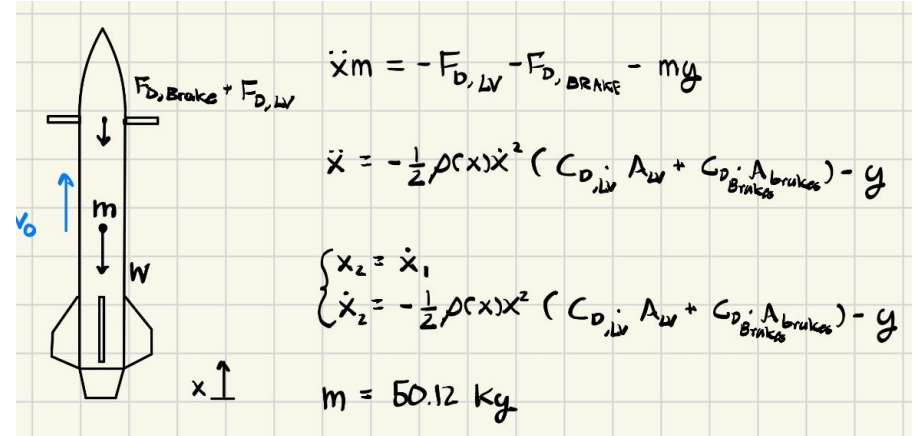 F_D,Brake + F_D,LV
v₀
m
W
x
ẍm = -F_D,LV - F_D,BRAKE - mg
ẍ = -½ρ(x)ẋ² (C_D,LV · A_LV + C_D,Brakes · A_brakes) - g
{x₂ = ẋ₁
{ẋ₂ = -½ρ(x)x² (C_D,LV · A_LV + C_D,Brakes · A_brakes) - g
m = 50.12 kg